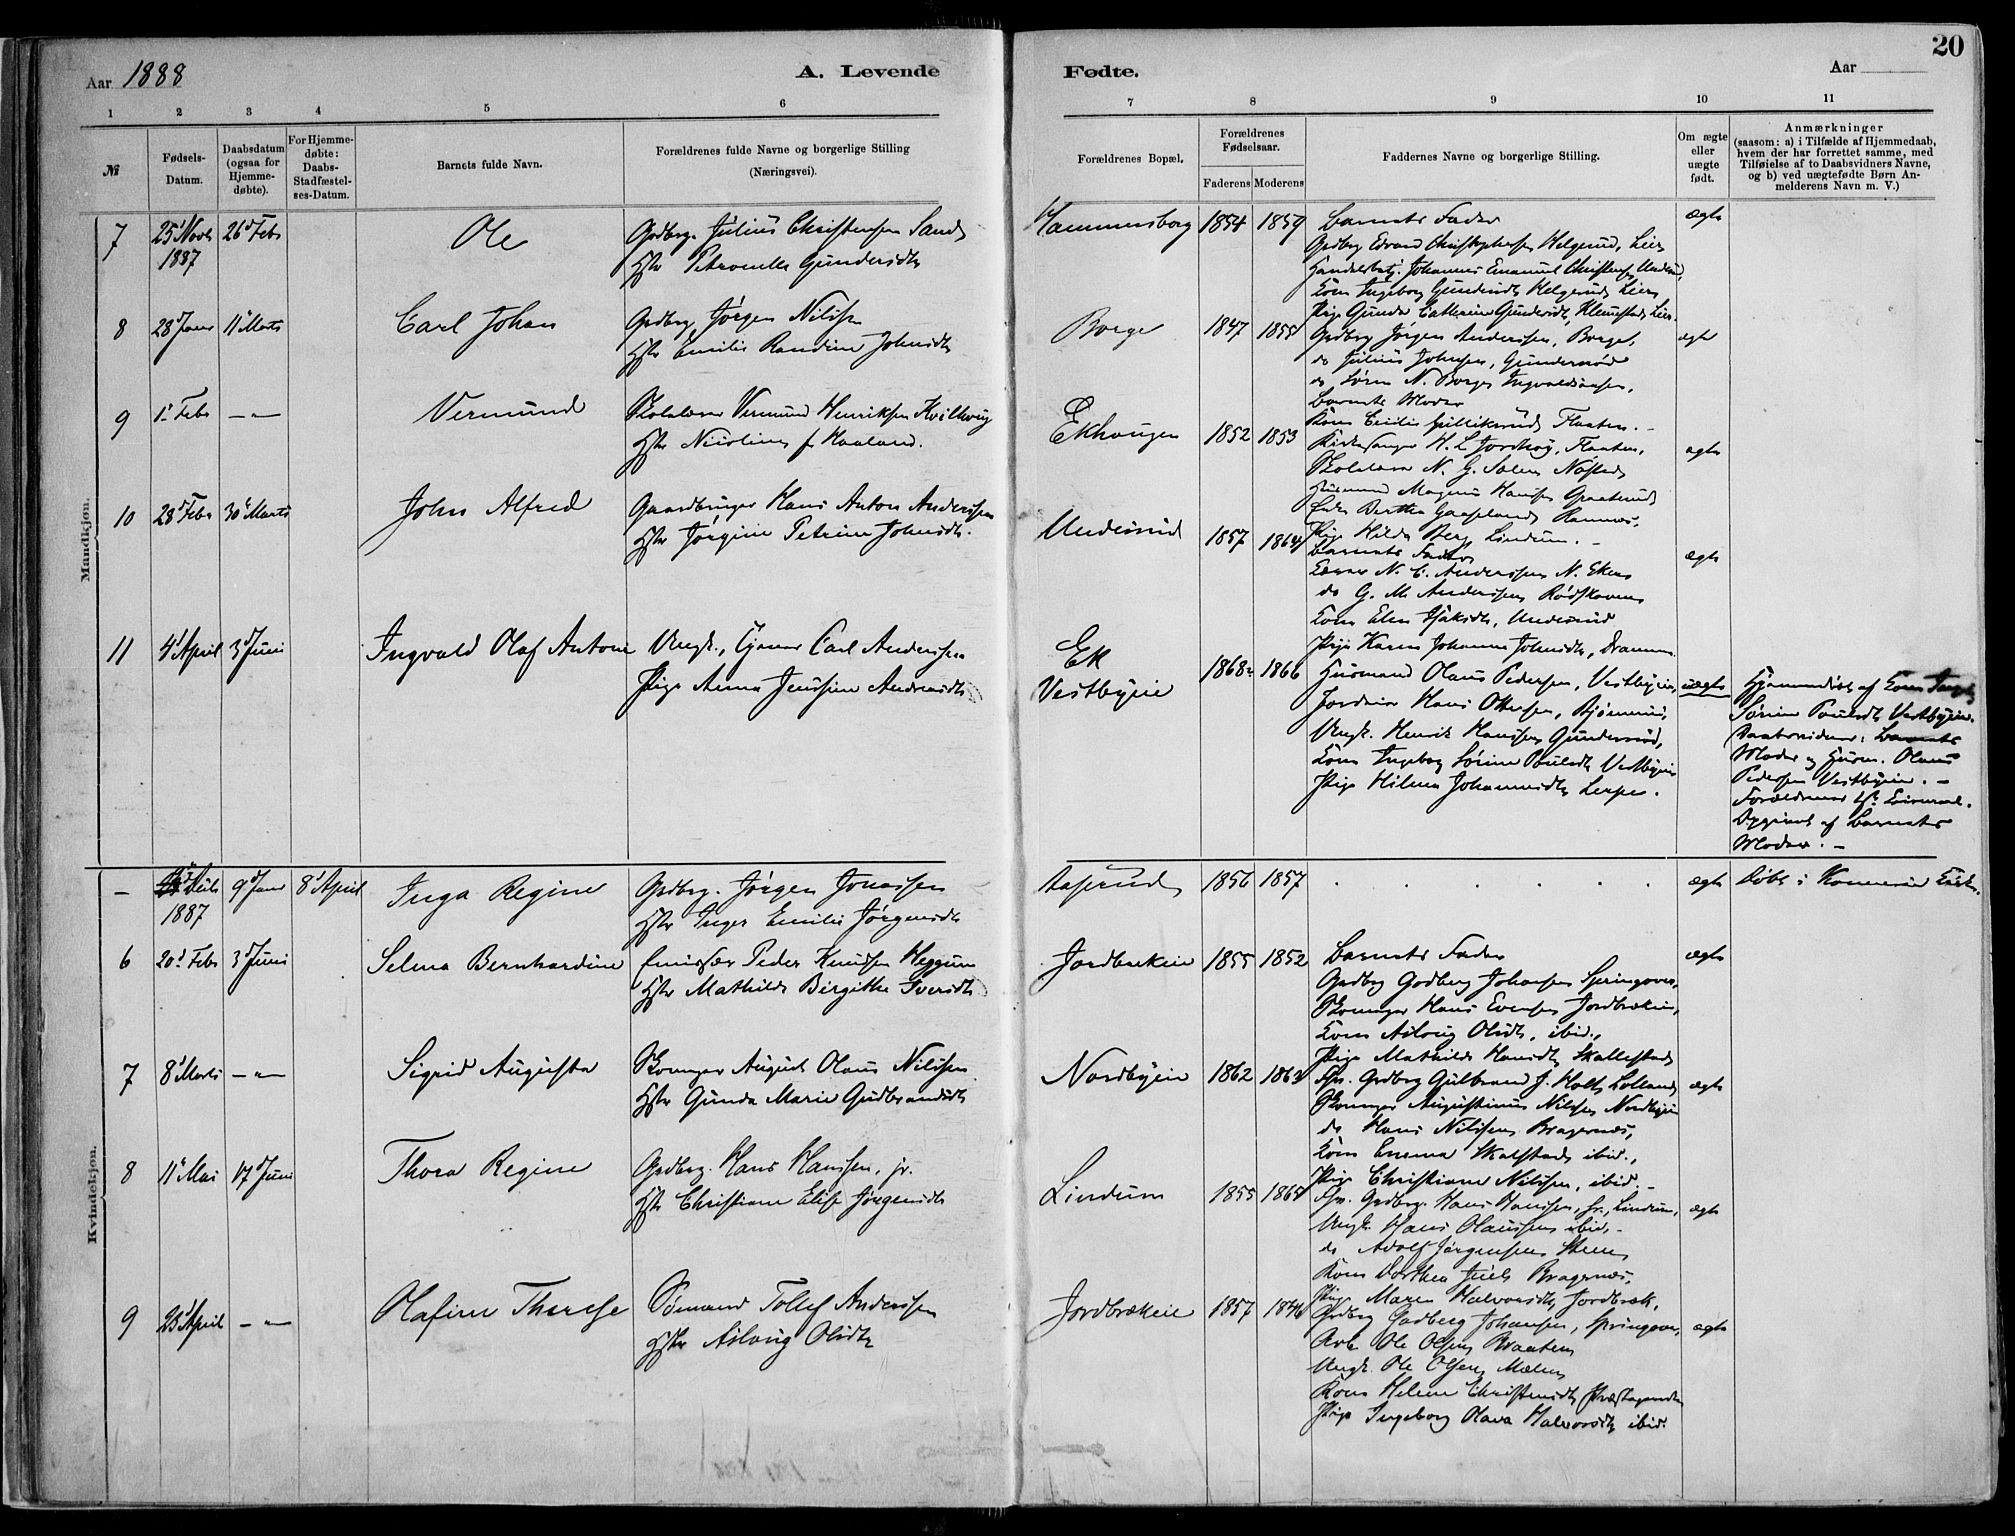 20
Aar 1888
A. Levende
Fødte.
Aar
1 2 3 4 5 6 7 8 9 10 11
№
Fødsels-
Datum.
Daabsdatum
(ogsaa for
Hjemme-
døbte).
For Hjemme-
døbte:
Daabs-
Stadfæstel-
ses-Datum.
Barnets fulde Navn.
Forældrenes fulde Navne og borgerlige Stilling
(Næringsvei).
Forældrenes Bopæl.
Forældrenes
Fødselsaar.
Faderens Moderens
Faddernes Navne og borgerlige Stilling.
Om ægte
eller
uægte
født.
Anmærkninger
(saasom: a) i Tilfælde af Hjemmedaab,
hvem der har forrettet samme, med
Tilføielse af to Daabsvidners Navne,
og b) ved uægtefødte Børn An-
melderens Navn m. V.)
Mandkjøn.
7 25 Novb 26 Feb Ole Grdbrg. Julius Christensen Sand
1887 Hstr Petronelle Gundersdtr
Hammersborg 1854 1859 Barnets Fader ægte
Grdbrg Edvard Christophersen Helgerud, Lier
Handelsbetj. Johannes Emanuel Christensen
Kone Ingeborg Gundersdtr Helgerud, Lier
Pige Gunda Cathrine Gundersdtr, Lier.
8 28 Janr 11 Marts Carl Johan Grdbrg Jørgen Nilsen
Hstr Emilie Randine Johnsdtr
Borge 1847 1855 Grdbrg Jørgen Anderssen, Borge, ægte
do Julius Johnsen, Gunderssrød
do Søren N. Borge
Barnets Moder
9 1 Feb —"— Vermund Skolelærer Vermund Henriksen Kvilhaug
Hstr Nicoline f. Haaland.
Ekhaugen 1852 1853 Kone Cecilie Flaaten. ægte
Kirkesanger H. L. Jordhøy, Flaaten,
Skolelærer N. G. Nøstad
Husmand Magnus Hansen
Enke Bertha
Pige Hilda Berg, Lindum. —
10 28 Feb 30 Marts John Alfred Gaardbruger Hans Anton Anderssen
Hstr Jørgine Petrine Johnsdtr.
Underud 1857 1864 Barnets Fader ægte
N. C. Anderssen N. Eker
do G. M. Anderssen Rødskoven
Kone Elen Isaksdtr, Underud
Pige Karen Johanne Johnsdtr, Drammen
11 4 April 3 Juni Ingvald Olaf Anton Ungk., Tjener Carl Anderssen
Pige Anna Jenssine Andersdtr
Ek
Vestbyeie
1868 1866 Husmand Olaus Pedersen, Vestbyeie, uægte
Hans Ottersen,
Ungk. Henrik Hanssen Gundersrød,
Kone Ingeborg Sørine Poulsdtr Vestbyeie
Pige Hilma Johannesdtr Lerpe.
Hjemmedøbt af Kone Ingeb.
Sørine Poulsdtr Vestbyeie.
Daabsvidner: Barnets
Moder og Husm. Olaus
Pedersen Vestbyeie. —
Opgivet af Barnets
Moder. —
Kvindekjøn.
— 1887 9 Janr 8 April Inga Regine Grdbrg. Jørgen Jonassen
Hstr Inger Emilie Jørgensdtr
Aaserud 1856 1857 . . . . . . ægte Døbt i Konnerud Kirke.
6 20 Feb 3 Juni Selma Bernhardine Emissær Peder Knudsen Heggum
Hstr Mathilde Birgithe Iversdtr
Jordbrækeie 1855 1852 Barnets Fader ægte
Grdbrg Godberg Johansen Springover,
Skomager Hans Evensen Jordbrækeie,
Kone Aslaug Olsdtr, ibid.,
Pige Mathilde Hansdtr, Skallestad
7 8 Marts —"— Sigrid Augusta Skomager August Olaus Nilssen
Hstr Gunda Marie Gudbrandsdtr
Nordbyeie 1862 1863 Fhv. Grdbrg Gulbrand J. Holt, Lolland, ægte
Skomager Augustinus Nilssen Nordbyeie
do Hans Nilssen Bragernæs,
Kone Emma Skalstad, ibid.,
Pige Christiane Nilssen, ibid. —
8 11 Mai 17 Juni Thora Regine Grdbrg. Hans Hanssen, jr.
Hstr Christiane Elise Jørgensdtr
Lindum 1855 1865 Fhv. Grdbrg. Hans Hanssen, sr., Lindum, ægte
Ungk. Hans Olaussen ibid. —
do Adolf Jørgensen Steen,
Kone Dorthea Juel Bragernæs,
Pige Maren Halvorsdtr, Jordbræk,
9 23 April —"— Olafine Therese Sømand Tollef Anderssen
Hstr Aslaug Olsdtr
Jordbrækeie 1857 1846 Grdbrg Godberg Johansen, Springover, ægte
Arb. Ole Olsen Braaten
Ungk. Ole Olsen Mælen,
Kone Helene Christensdtr,
Pige Ingeborg Olava Halvorsdtr, ibid.